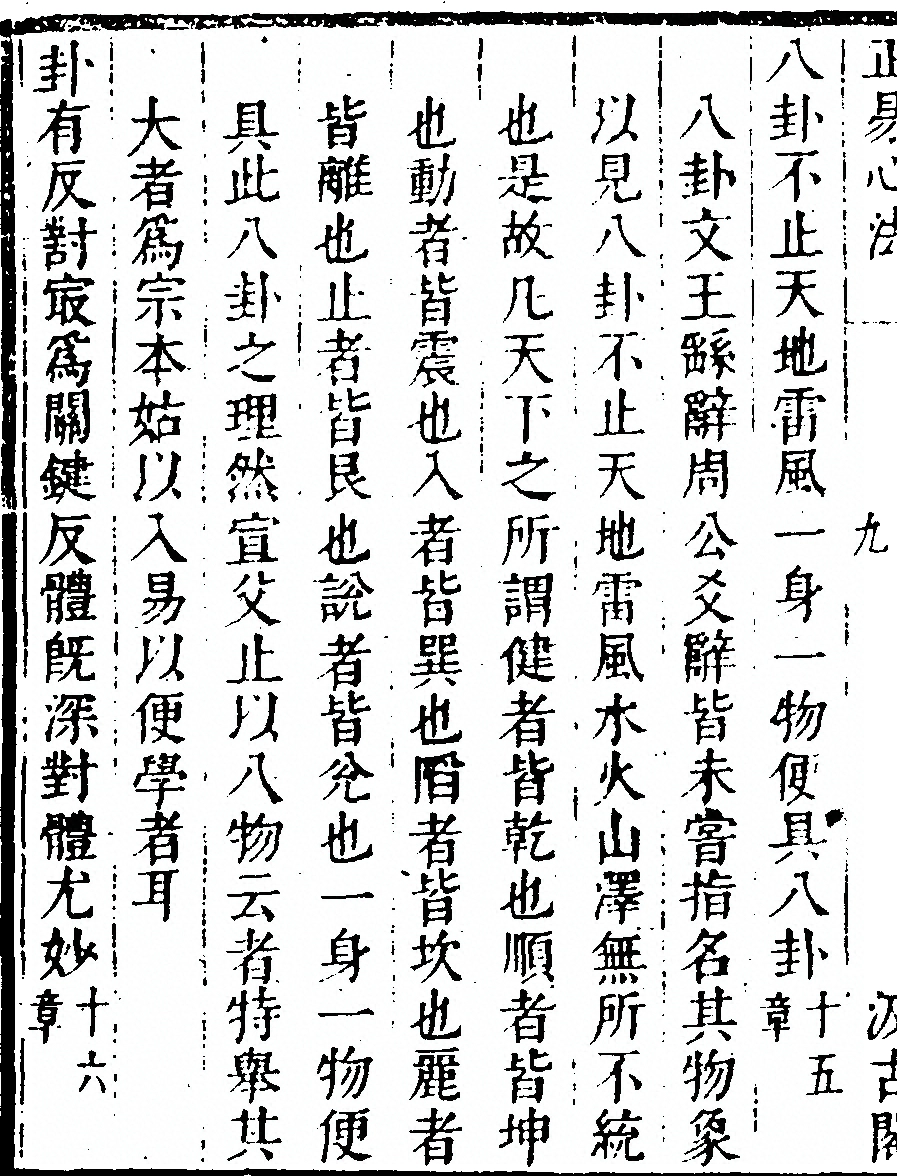 正易心法 九 汲古閣
八卦不止天地雷風一身一物便具八卦十五章
八卦文王繇辭周公爻辭皆未嘗指名其物象
以見八卦不止天地雷風水火山澤無所不統
也是故凡天下之所謂健者皆乾也順者皆坤
也動者皆震也入者皆巽也陷者皆坎也麗者
皆離也止者皆艮也說者皆兊也一身一物便
具此八卦之理然宣父止以八物云者特舉其
大者爲宗本姑以入易以便學者耳
卦有反對㝡爲關鍵反體旣深對體尤妙十六章